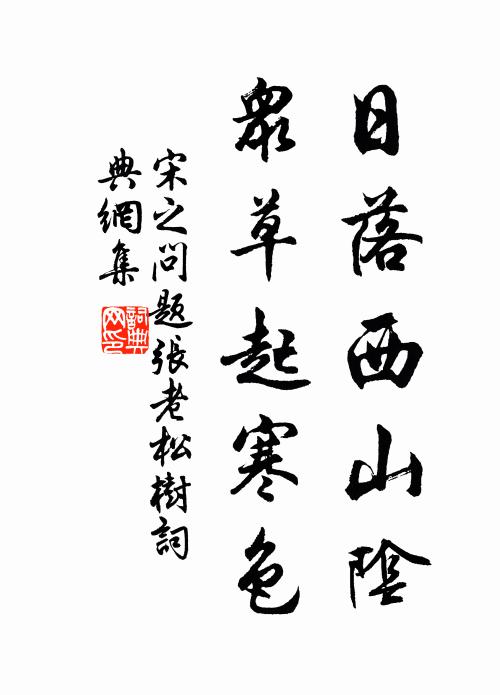 日落西山陰
眾草起寒色
宋之問題張老松樹詞
典網集
詞典
网印